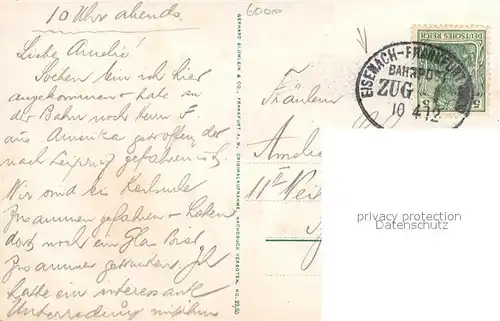 10 Uhr abends.
Liebe Amelie!
Soeben bin ich hier
angekommen + habe an
der Bahn noch Herrn F.
aus Amerika getroffen, der
nach Leipzig gefahren ist.
Wir sind bis Karlsruhe
zusammen gefahren + haben
dort noch ein Glas Bier
zusammen getrunken. Ich
hatte ein interessante
Unterredung mit ihm
GERHARD BLÜMLEIN & CO., FRANKFURT A. M.
6000
Fräulein
Amelie
DEUTSCHES REICH
5
EISENACH-FRANKFURT
BAHNPOST
ZUG
10 4 12
privacy protection
Datenschutz